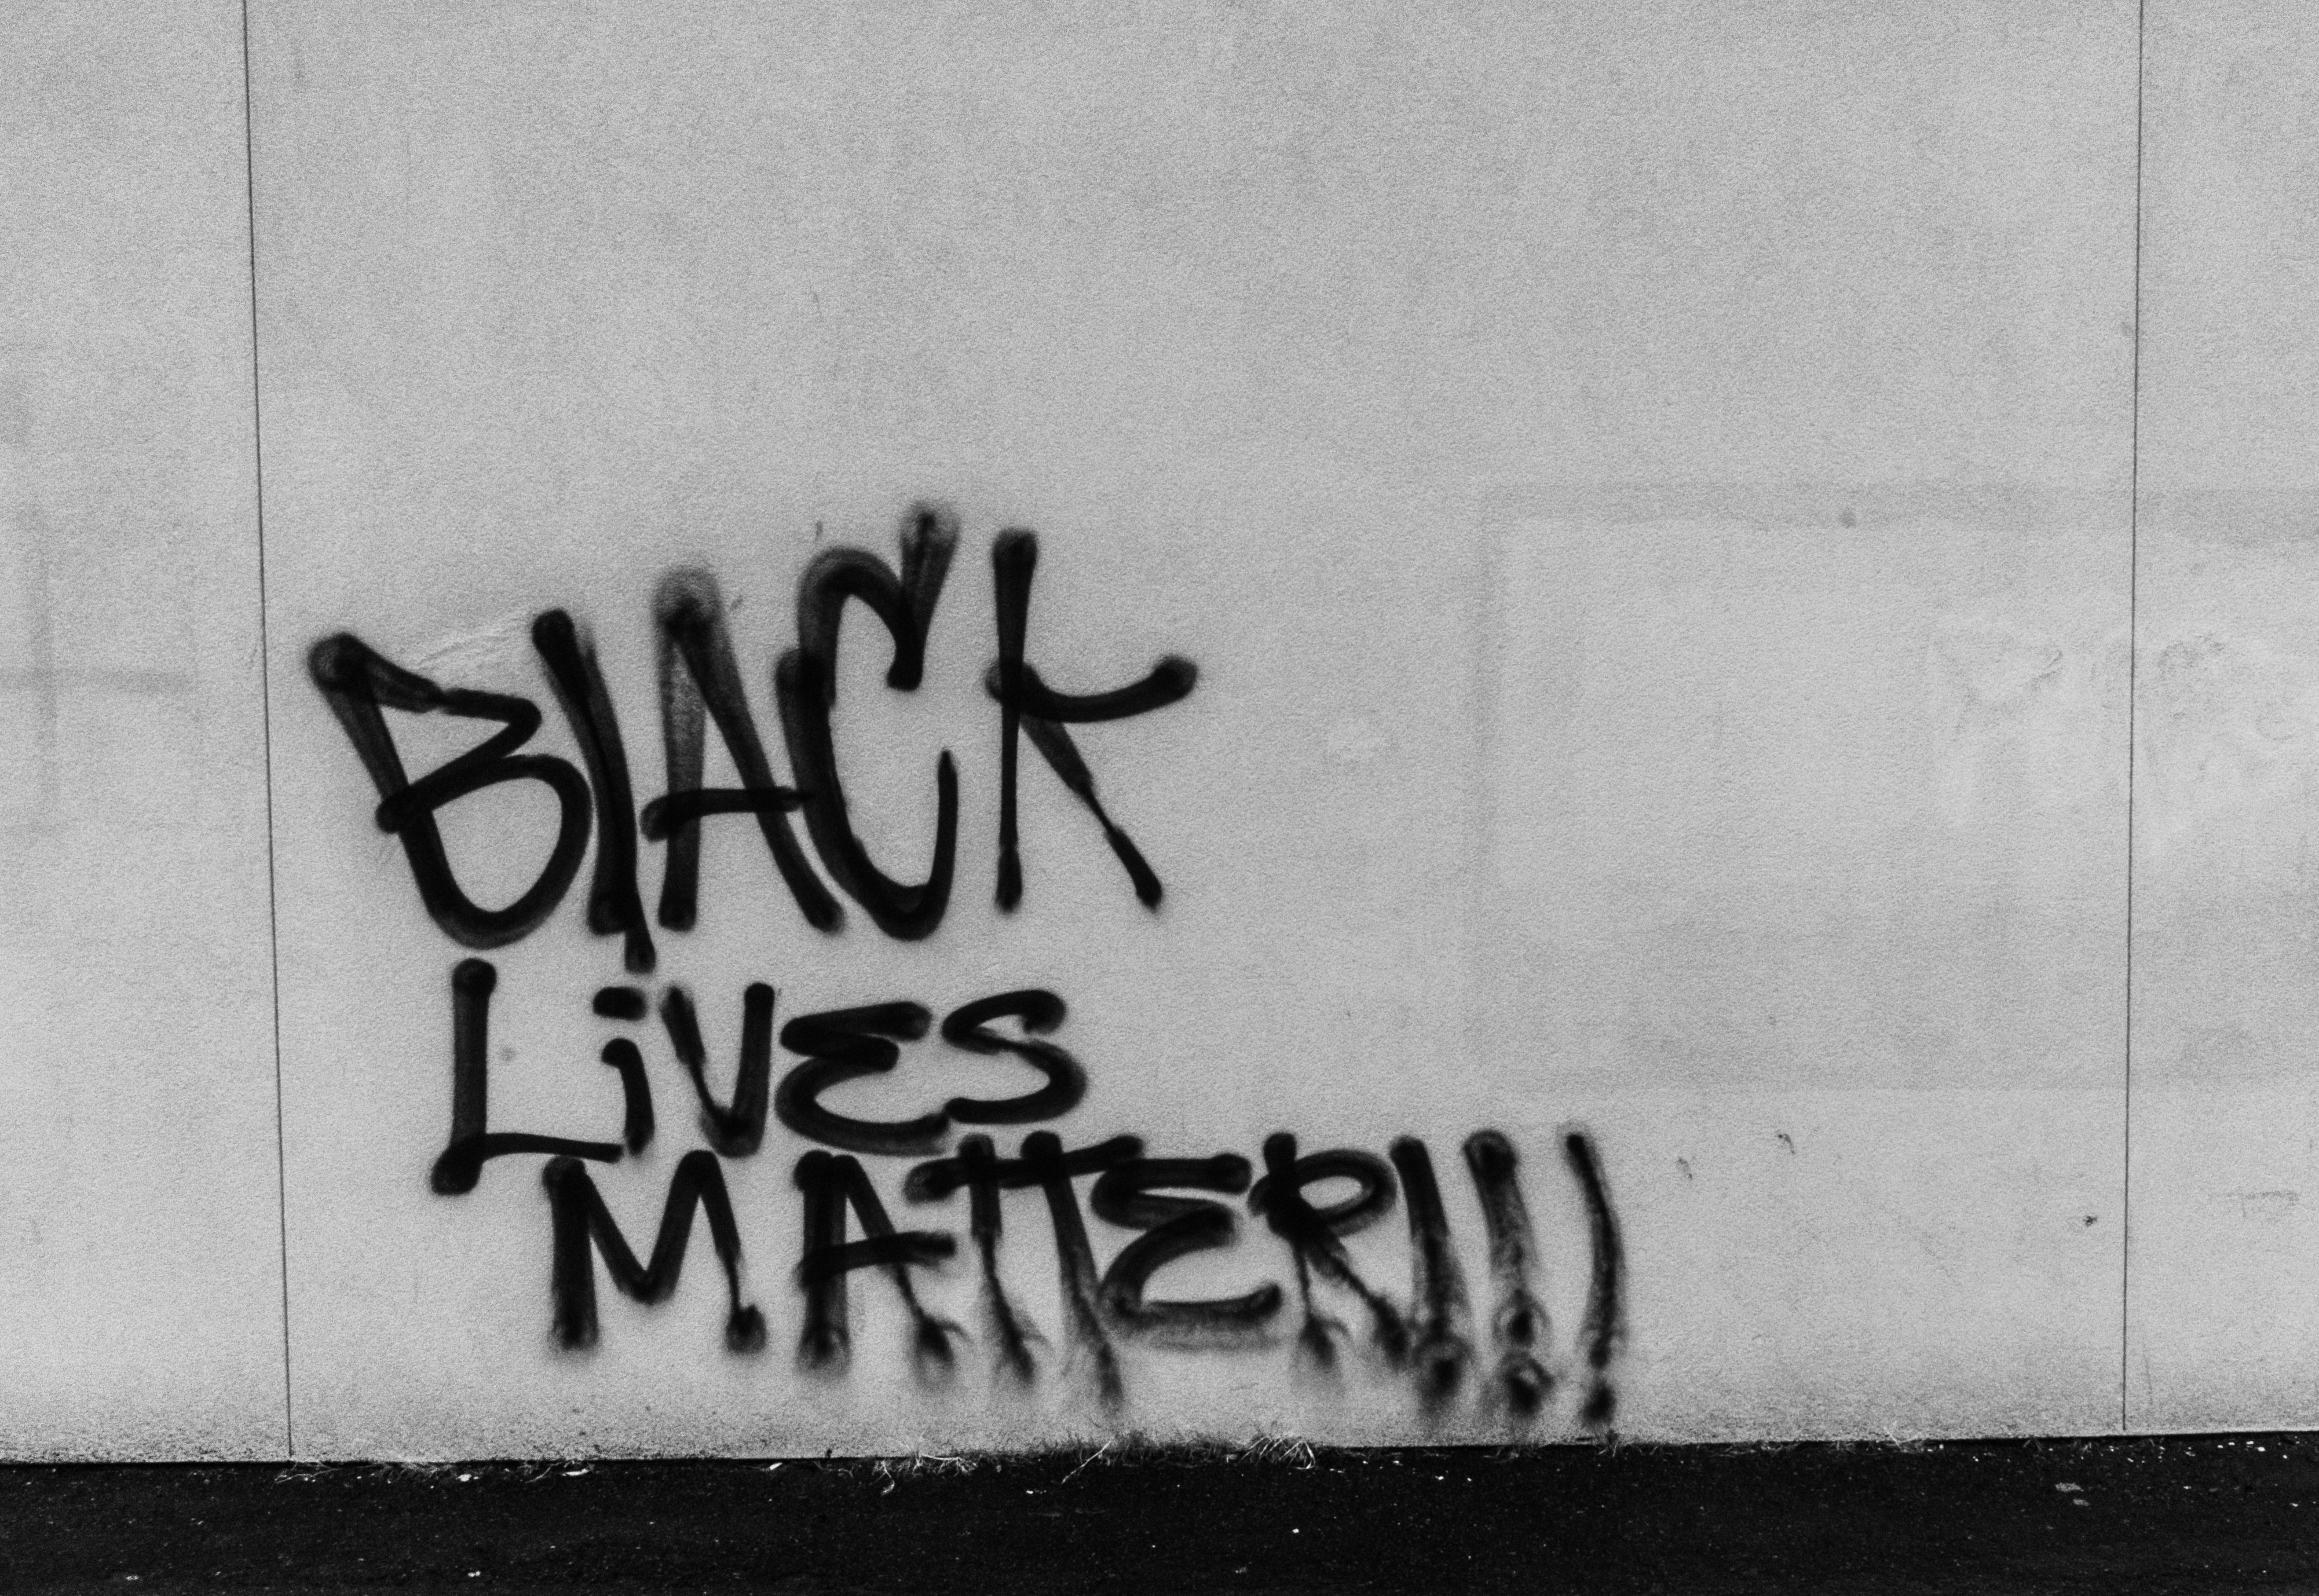 BLACK
LiVES
MATTER!!!